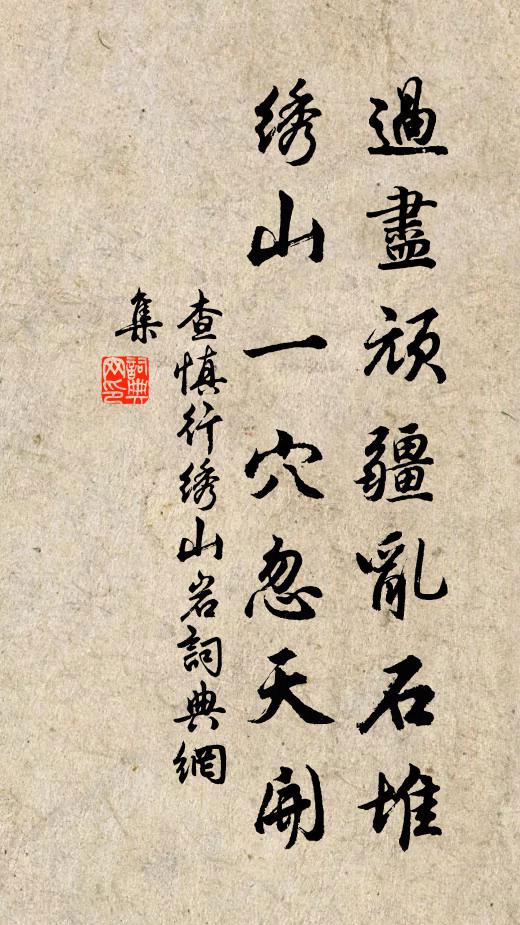 過盡頑疆亂石堆
绣山一穴忽天開
查慎行绣山岩詞典網
集
詞典
网印